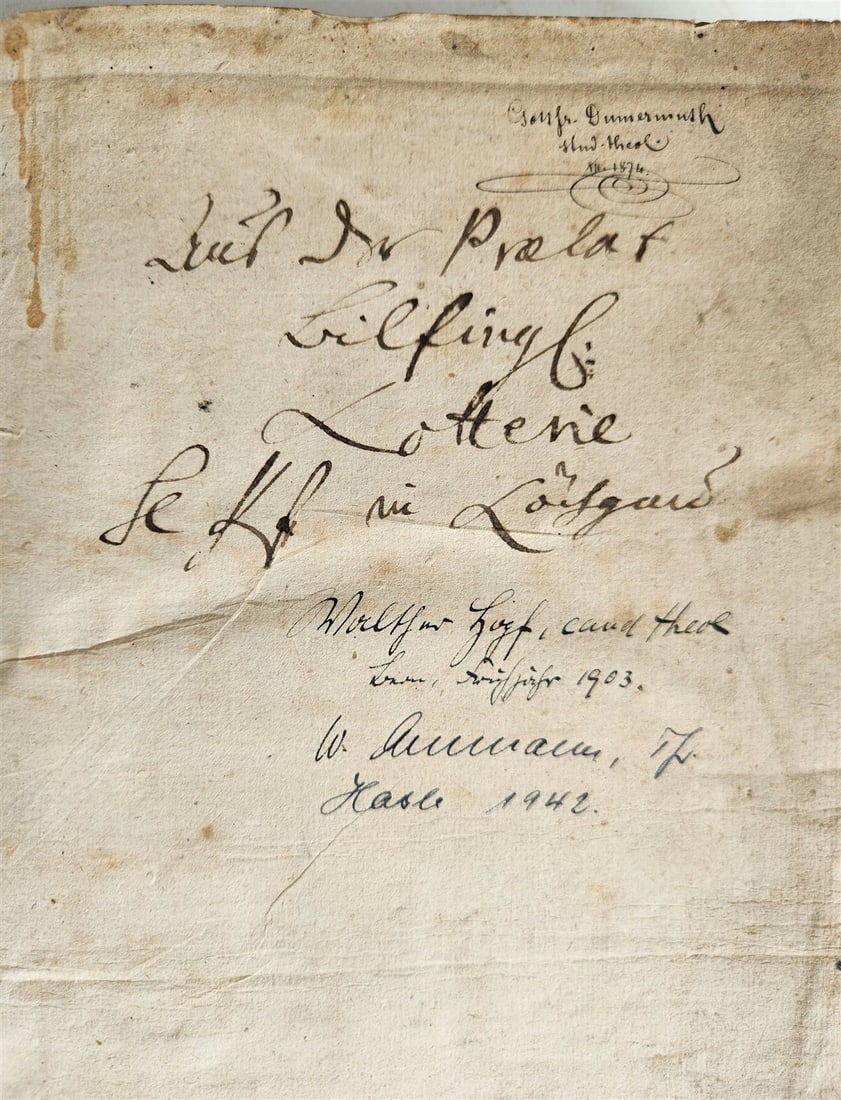 Gottfr. Dumermuth
stud. theol.
XII. 1874.
Aus der Prælat
Bilfing
Lotterie
in
Walther Hopf, cand theol
Bern, Frühjahr 1903.
W. Ammann, Pfr.
Hasle 1942.